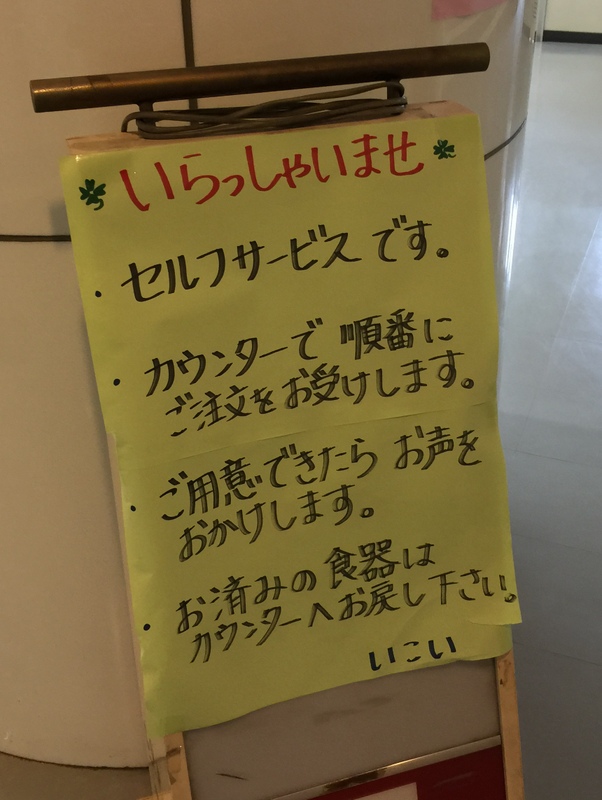 いらっしゃいませ
・セルフサービスです。
・カウンターで順番に
ご注文をお受けします。
・ご用意できたらお声を
おかけします。
・お済みの食器は
カウンターへお戻し下さい。
いこい